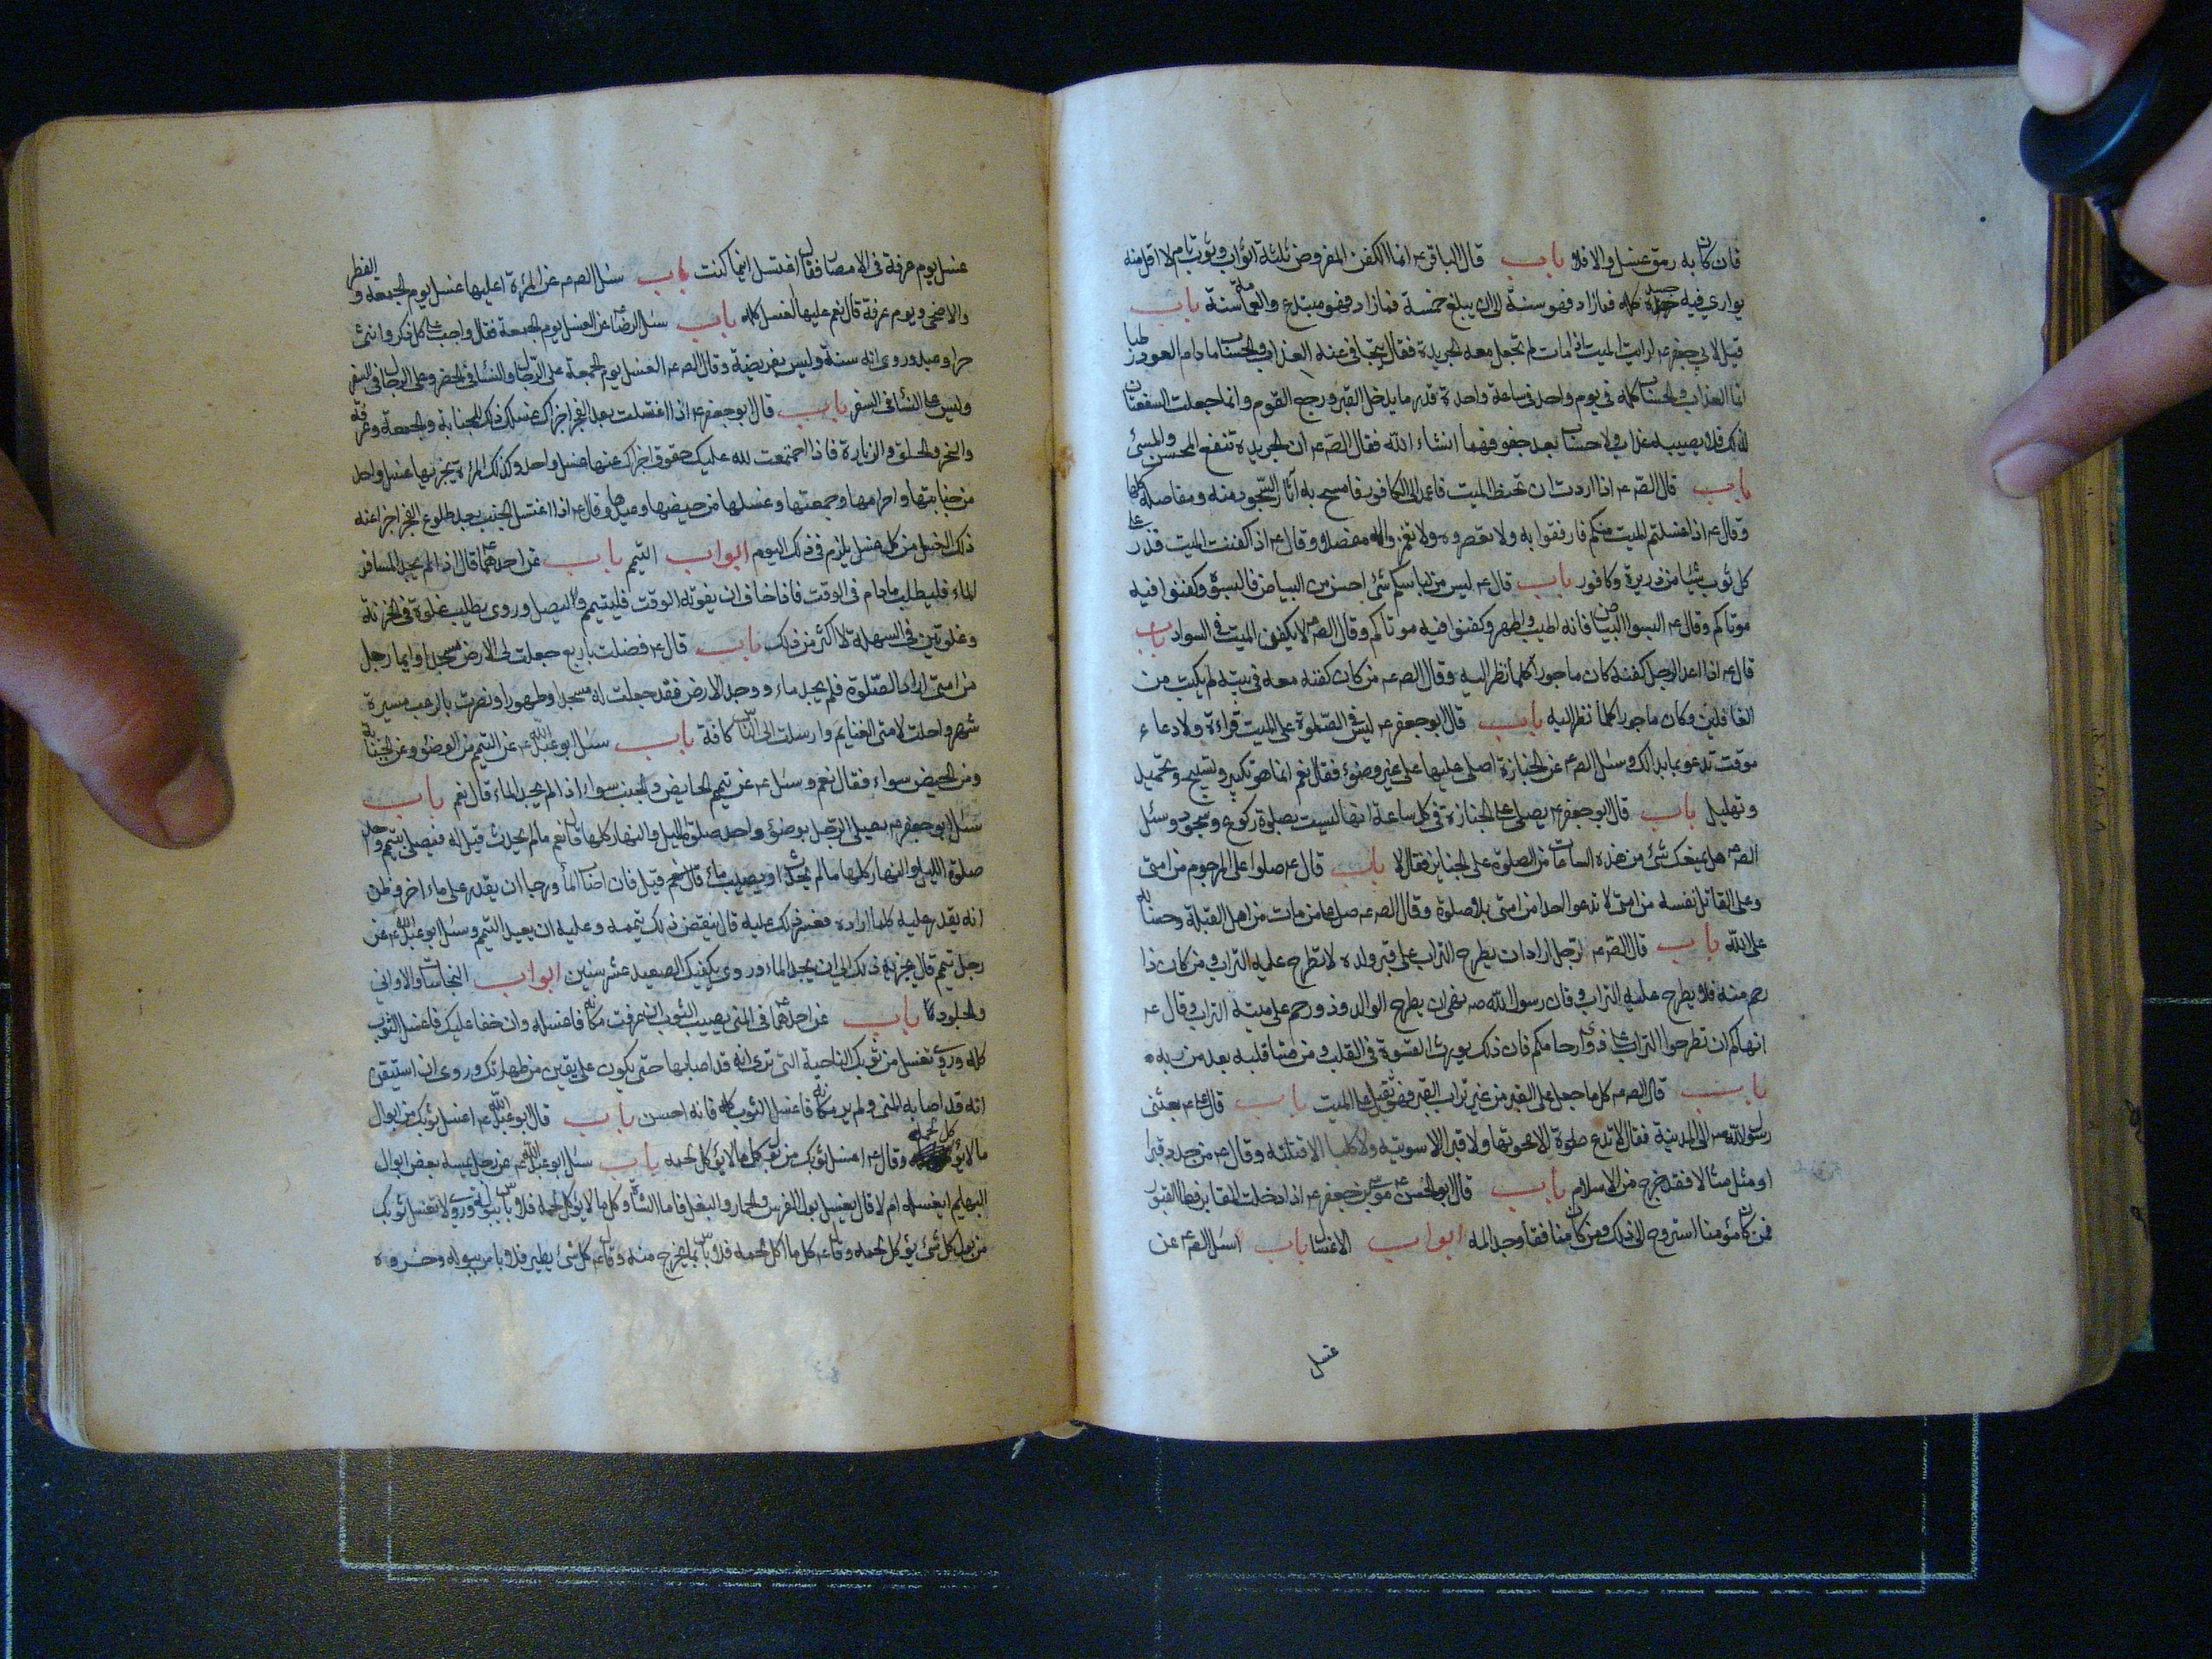 فان كان به رمق غسل والا فلا باب قال الباقر ع انما الكفن المفروض ثلثة اثواب وثوب تام لا اقل منه
يواري فيه جسده كله فما زاد فهو سنة الى ان يبلغ خمسة فما زاد فهو مبتدع والعمامة سنة باب
قيل لابي جعفر ع ارايت الميت اذا مات لم تجعل معه الجريدة فقال يتجافى عنه العذاب والحساب ما دام العود رطبا
انما العذاب والحساب كله في يوم واحد في ساعة واحدة قدر ما يدخل القبر ورجع القوم وانما جعلت السعفتان
لذلك فلا يصيبه عذاب ولا حساب بعد جفوفهما انشاء الله فقال الص ع ان الجريدة تنفع المحسن والمسئ
باب قال الص ع اذا اردت ان تحنط الميت فاعمد الى الكافور فامسح به آثار السجود منه ومفاصله كلها
وقال ع اذا غسلتم الميت منكم فارفقوا به ولا تعصروه ولا تغمزوا له مفصلا وقال ع اذا كفنت الميت فذر على
كل ثوب شيئا من ذريرة وكافور باب قال ع ليس من لباسكم شئ احسن من البياض فالبسوه وكفنوا فيه
موتاكم وقال ع البسوا البياض فانه اطيب واطهر وكفنوا فيه موتاكم وقال الص ع لا يكفن الميت في السواد باب
قال ع اذا اعد الرجل كفنه كان ماجورا كلما نظر اليه وقال الص ع من كان كفنه معه في بيته لم يكتب من
الغافلين وكان ماجورا كلما نظر اليه باب قال ابو جعفر ع ليس في الصلوة على الميت قراءة ولا دعاء
موقت تدعو بما بدا لك وسئل الص ع عن الجنازة اصلي عليها على غير وضوء فقال نعم انما هو تكبير وتسبيح وتحميد
وتهليل باب قال ابو جعفر ع يصلى على الجنازة في كل ساعة انها ليست بصلوة ركوع وسجود وسئل
الص ع هل يمنعك شئ من هذه الساعات من الصلوة على الجنايز فقال لا باب قال ع صلوا على المرجوم من امتي
وعلى القاتل نفسه من امتي لا تدعوا احدا من امتي بلا صلوة وقال الص ع صل على من مات من اهل القبلة وحسابه
على الله باب قال الص ع لرجل اراد ان يطرح التراب على قبر ولده لا تطرح عليه التراب ومن كان ذا
رحم منه فلا يطرح عليه التراب فان رسول الله ص نهى ان يطرح الوالد وذو رحم على ميته التراب وقال ع
انهاكم ان تطرحوا التراب على ذوي ارحامكم فان ذلك يورث القسوة في القلب ومن قسا قلبه بعد من ربه
باب قال الص ع كل ما جعل على القبر من غير تراب القبر فهو ثقيل على الميت باب قال علي ع بعثني
رسول الله ص الى المدينة فقال لا تدع صورة الا محوتها ولا قبرا الا سويته ولا كلبا الا قتلته وقال ع من جدد قبرا
او مثل مثالا فقد خرج من الاسلام باب قال ابو الحسن موسى بن جعفر ع اذا دخلت المقابر فطا القبور
فمن كان مؤمنا استروح الى ذلك ومن كان منافقا وجد المه ابواب الاغسال باب سئل الص ع عن
غسل
غسل يوم عرفة في الامصار فقال اغتسل اينما كنت باب سئل الص ع عن المرءة اعليها غسل يوم الجمعة والفطر
والاضحى ويوم عرفة قال نعم عليها الغسل كله باب سئل الرضا ع عن الغسل يوم الجمعة فقال واجب على كل ذكر وانثى
حر او عبد وروى انه سنة وليس بفريضة وقال الص ع الغسل يوم الجمعة على الرجال والنساء في الحضر وعلى الرجال في السفر
وليس على النساء في السفر باب قال ابو جعفر ع اذا اغتسلت بعد الفجر اجزاك غسلك ذلك للجنابة والجمعة وعرفة
والنحر والحلق والزيارة فاذا اجتمعت لله عليك حقوق اجزاك عنها غسل واحد وكذلك المرءة يجزيها غسل واحد
من جنابتها واحرامها وجمعتها وغسلها من حيضها وعيدها وقال ع اذا اغتسل الجنب بعد طلوع الفجر اجزا عنه
ذلك الغسل من كل غسل يلزم في ذلك اليوم ابواب التيمم باب عن احدهما ع قال اذا لم يجد المسافر
الماء فليطلب مادام في الوقت فاذا خاف ان يفوته الوقت فليتيمم وليصل وروى يطلب غلوة في الحزنة
وغلوتين في السهلة لا اكثر من ذلك باب قال ع فضلت باربع جعلت لي الارض مسجدا وايما رجل
من امتي اراد الصلوة فلم يجد ماء ووجد الارض فقد جعلت له مسجدا وطهورا ونصرت بالرعب مسيرة
شهر واحلت لامتي الغنايم وارسلت الى الناس كافة باب سئل ابو عبد الله ع عن التيمم من الوضوء وعن الجنابة
ومن الحيض سواء فقال نعم وسئل ع عن تيمم الحايض والجنب سواء اذا لم يجد الماء قال نعم باب
سئل ابو جعفر ع يصلي الرجل بوضوء واحد صلوة الليل والنهار كلها قال نعم ما لم يحدث قيل له فيصلي بتيمم واحد
صلوة الليل والنهار كلها ما لم يحدث او يصيب ماء قال نعم قيل فان اصاب الماء ورجا ان يقدر على ماء اخر وظن
انه يقدر عليه كلما اراده فعسر ذلك عليه قال ينقض ذلك تيممه وعليه ان يعيد التيمم وسئل ابو عبد الله ع عن
رجل تيمم قال يجزيه ذلك الى ان يجد الماء وروى يكفيك الصعيد عشر سنين ابواب النجاسات والاواني
والجلود باب عن احدهما ع في المني يصيب الثوب ان عرفت مكانه فاغسله وان خفى عليك فاغسل الثوب
كله وروى تغسل من ثوبك الناحية التي ترى انه قد اصابها حتى يكون على يقين من طهارتك وروى ان استيقن
انه قد اصابه المني ولم ير مكانه فاغسل الثوب كله فانه احسن باب قال ابو عبد الله ع اغسل ثوبك من ابوال
ما لا يؤكل لحمه وقال ع اغسل ثوبك من بول كل ما لا يؤكل لحمه باب سئل ابو عبد الله ع عن رجل يمسه بعض ابوال
البهايم ايغسله ام لا قال يغسل بول الفرس والحمار والبغل فاما الشاة وكل ما يؤكل لحمه فلا باس ببوله وروي لا تغسل ثوبك
من بول كل شئ يؤكل لحمه وقال ع كل ما اكل لحمه فلا باس بما يخرج منه وقال ع كل شئ يطير فلا باس ببوله وخروه